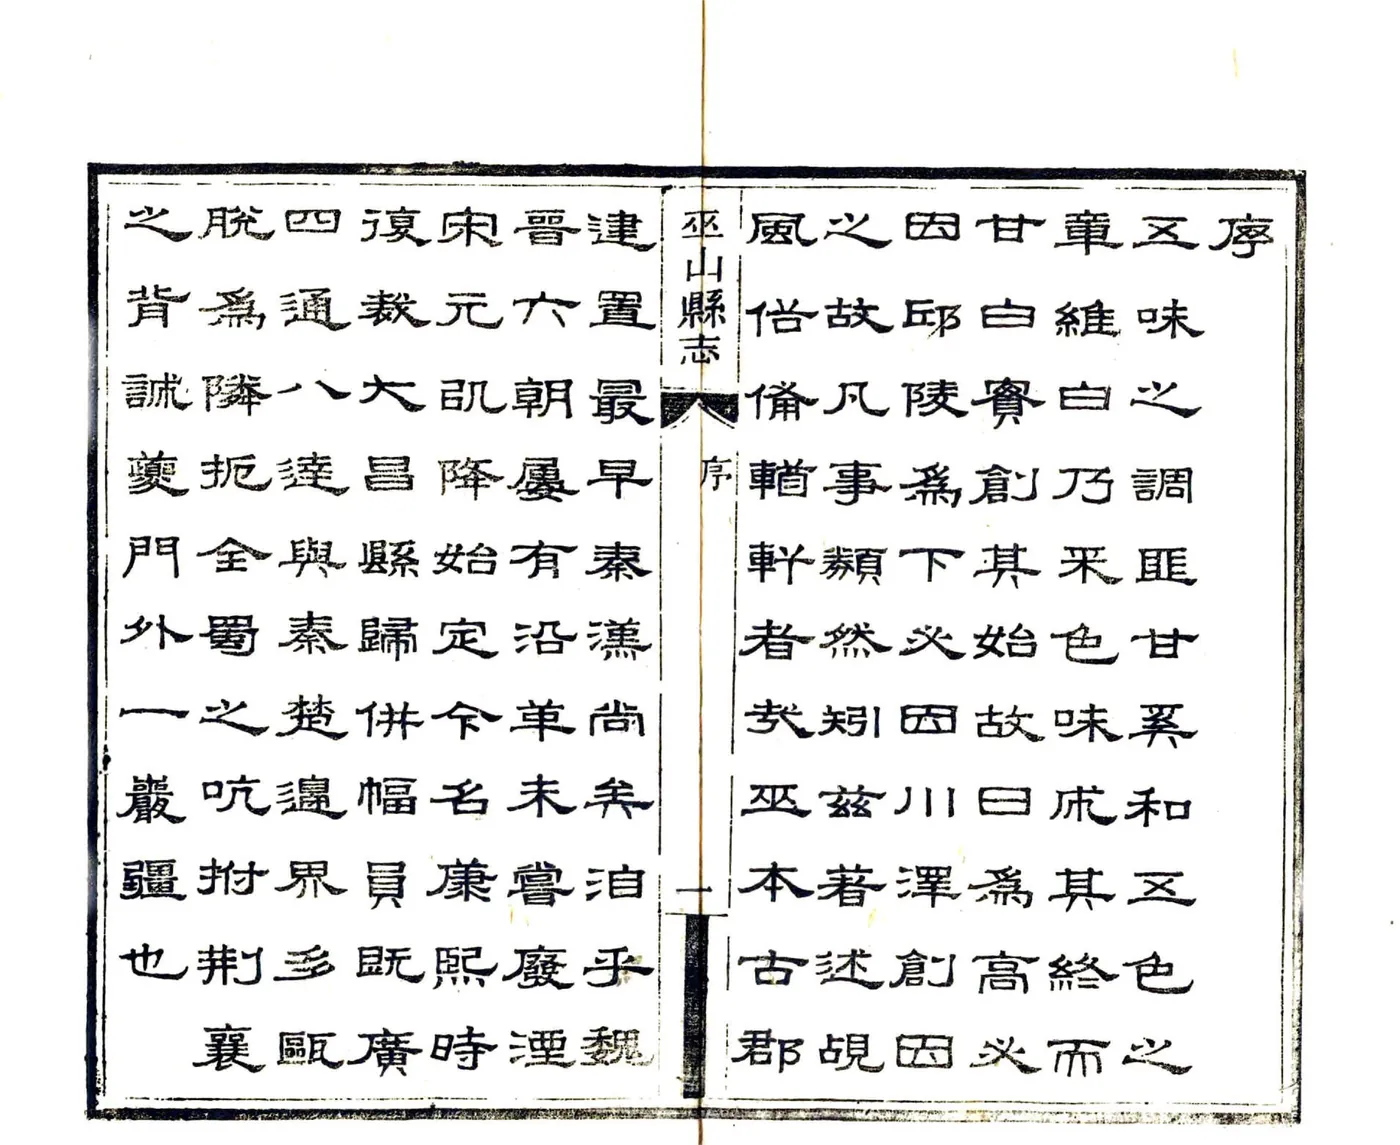 序
五味之調匪甘奚和五色之
章維白乃采色味成其終而
甘白實創其始故曰爲高必
因邱陵爲下必因川澤創因
之故凡事類然矧茲著述覘
風俗備輶軒者哉巫本古郡
巫山縣志
序
一
建置最早秦漢尚矣洎乎魏
晉六朝屢有沿革未嘗廢湮
宋元以降始定今名康熙時
復裁大昌縣歸併幅員既廣
四通八達與秦楚邊界多甌
脫爲隣扼全蜀之吭拊荆襄
之背誠夔門外一巖疆也